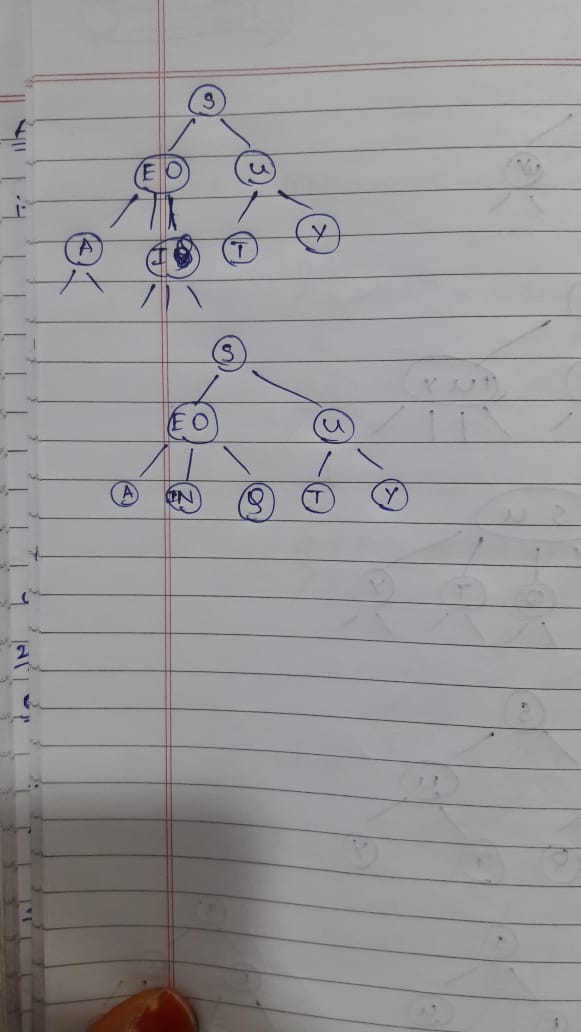 S
E O U
A I T Y
S
E O U
A IN Q T Y